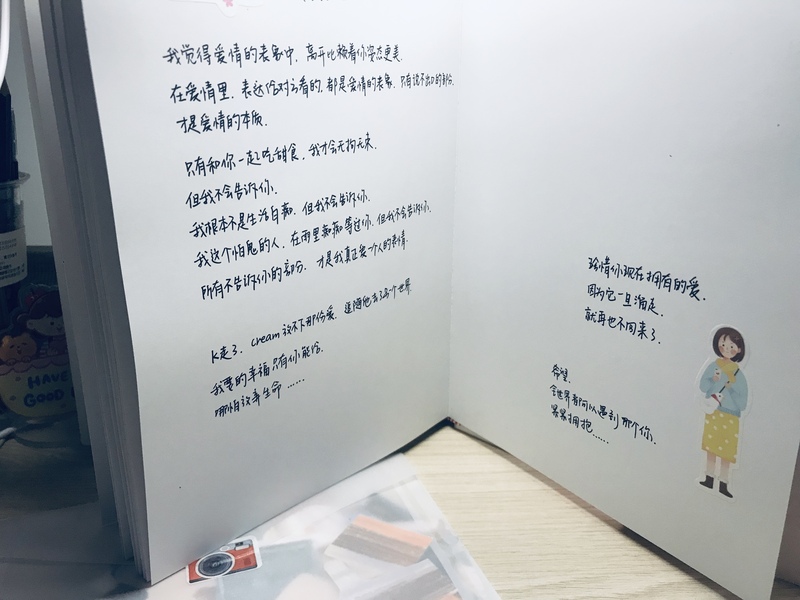 我觉得爱情的表象中，离开比赖着你姿态更美.
在爱情里，表达给对方看的，都是爱情的表象，只有说不出口的部分，
才是爱情的本质.
只有和你一起吃甜食，我才会无拘无束.
但我不会告诉你.
我根本不是生活白痴，但我不会告诉你.
我这个怕鬼的人，在雨里痴痴等过你，但我不会告诉你.
所有不告诉你的部分，才是我真正爱一个人的表情.
K走了，cream放不下那份爱，追随他去了另一个世界
我要的幸福只有你能给.
哪怕放弃生命......
珍惜你现在拥有的爱.
因为它一旦溜走.
就再也不回来了.
希望.
全世界都可以遇到那个你.
紧紧拥抱......
HAVE
GOOD